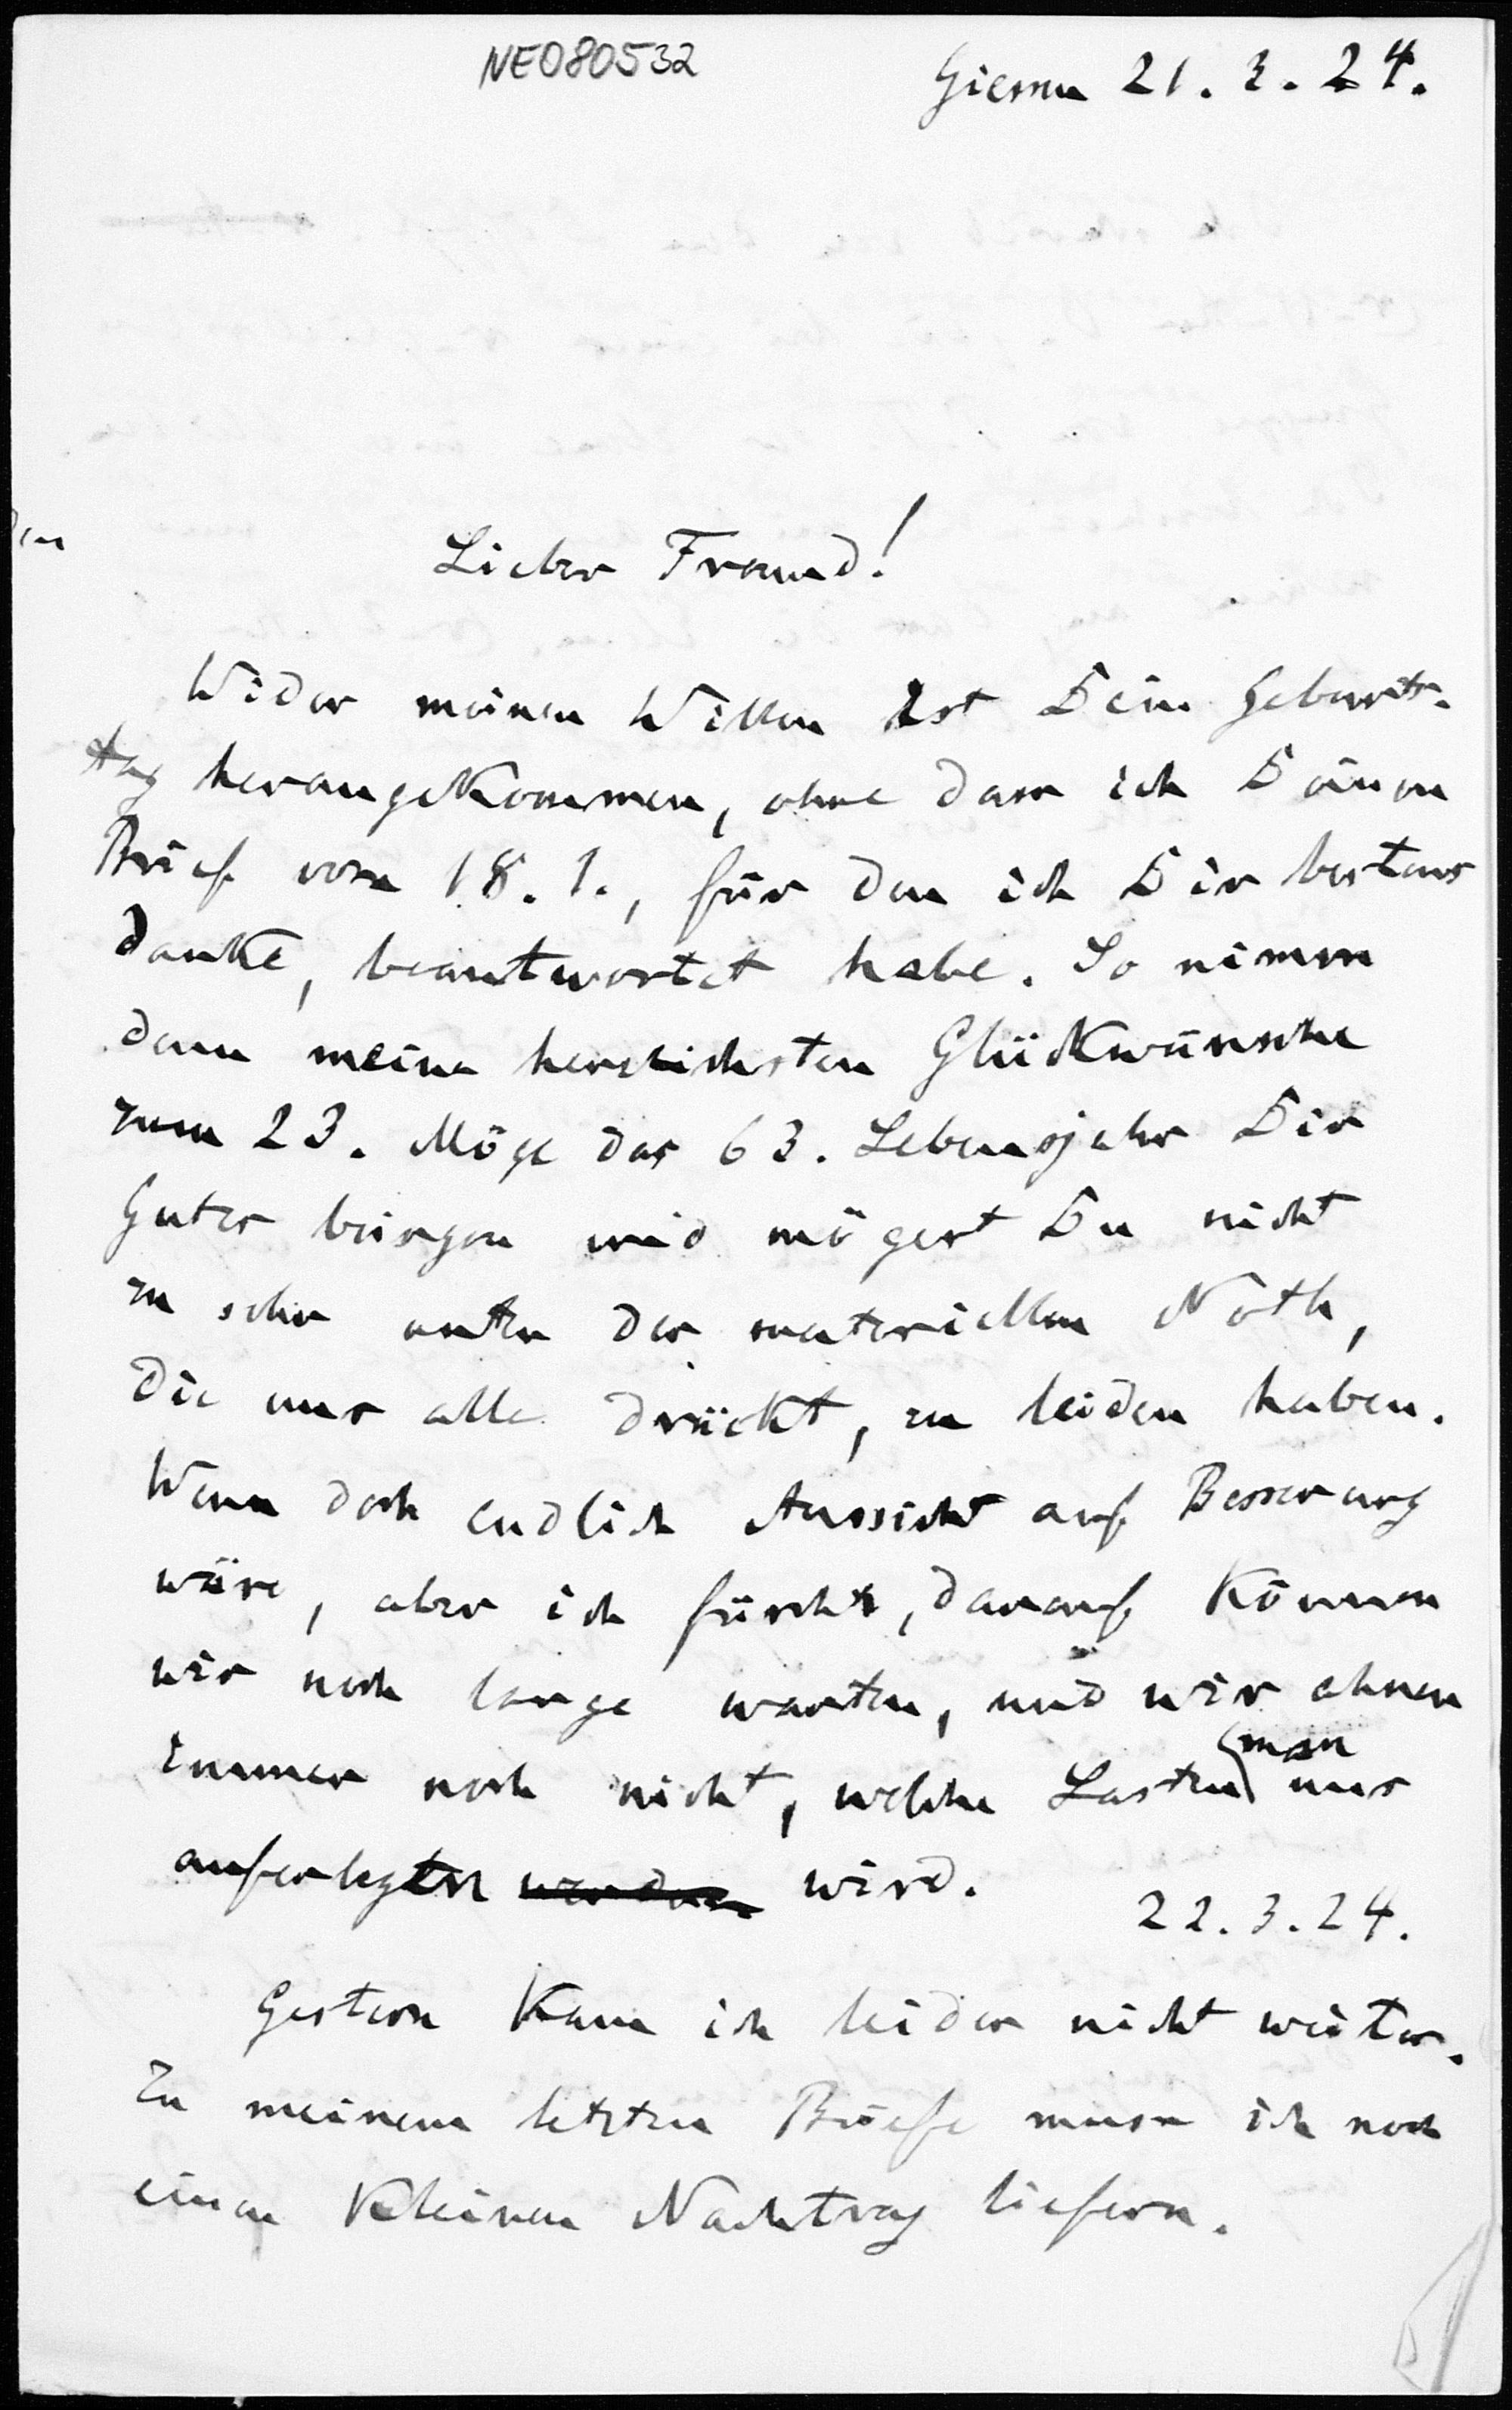 NE080532
Giessen 21.3.24.
Lieber Freund!
Wider meinen Willen ist Dein Geburts-
tag herangekommen, ohne dass ich Deinen
Brief vom 18.1., für den ich Dir bestens
danke, beantwortet habe. So nimm
denn meine herzlichsten Glückwünsche
zum 23. Möge das 63. Lebensjahr Dir
Gutes bringen und mögest Du nicht
zu sehr unter der materiellen Noth,
die uns alle drückt, zu leiden haben.
Wenn doch endlich Aussicht auf Besserung
wäre, aber ich fürchte, darauf können
wir noch lange warten, und wir ahnen
immer noch nicht, welche Lasten man uns
auferlegen werden wird.
22.3.24.
Gestern kam ich leider nicht weiter.
Zu meinem letzten Briefe muss ich noch
einen kleinen Nachtrag liefern.